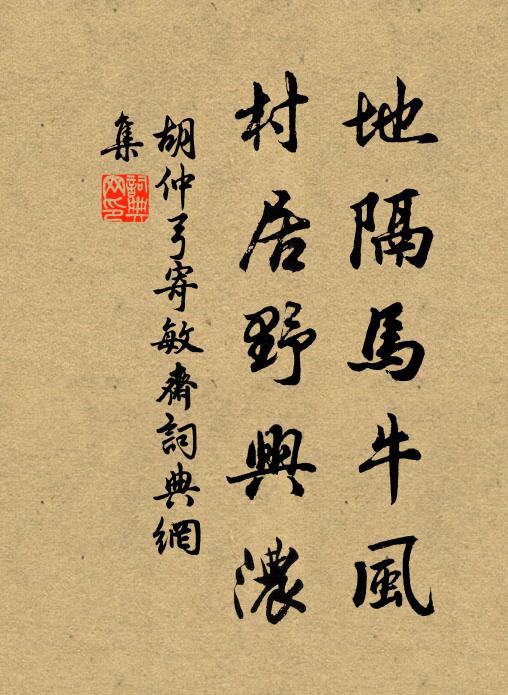 地隔馬牛風
村居野興濃
胡仲弓寄敏齋詞典網
集
詞典
网印